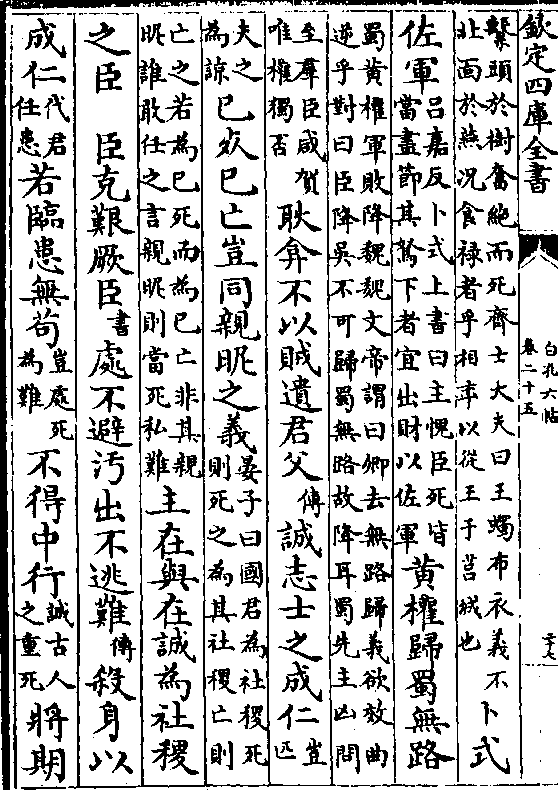 欽定四庫全書
白孔六帖
卷二十五
繫頭於樹奮絶而死齊士大夫曰王蠋布衣義不
北面於燕况食禄者乎相率以從王子莒城也
卜式
佐軍
吕嘉反卜式上書曰主愧臣死皆
當盡節其駑下者宜出財以佐軍
黄權歸蜀無路
蜀黄權軍敗降魏魏文帝謂曰卿去無路歸義欲效曲
逆乎對曰臣降吳不可歸蜀無路故降耳蜀先主凶問
至羣臣咸賀
唯權獨否
耿弇不以賊遺君父
傳
誠志士之成仁
豈
匹
夫之
為諒
已死已亡豈同親昵之義
晏子曰國君為社稷死
則死之為其社稷亡則
亡之若為已死而為已亡非其親
昵誰敢任之言親昵則當死私難
主在與在誠為社稷
之臣 臣克艱厥臣
書
處不避汚出不逃難
傳
殺身以
成仁
代君
任患
若臨患無苟
豈處死
為難
不得中行
誠古人
之重死
將期